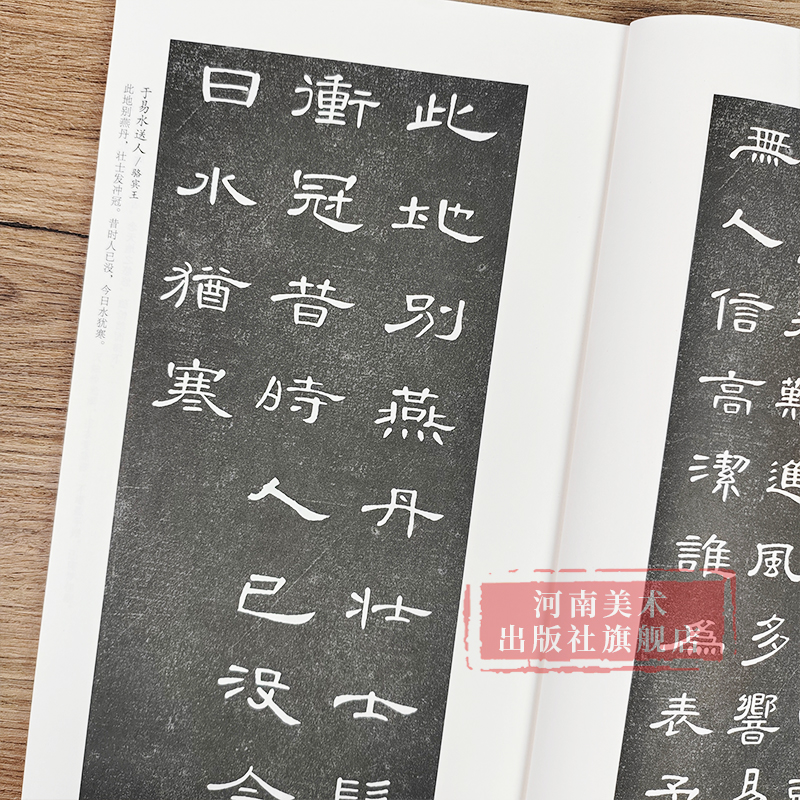 于易水送人 / 骆宾王
此地别燕丹，壮士发冲冠。昔时人已没，今日水犹寒。
此地别燕丹壮士
衝冠昔時人已没今
日水猶寒
難進風多響易
無人信高潔誰爲表予
河南美术
出版社旗舰店